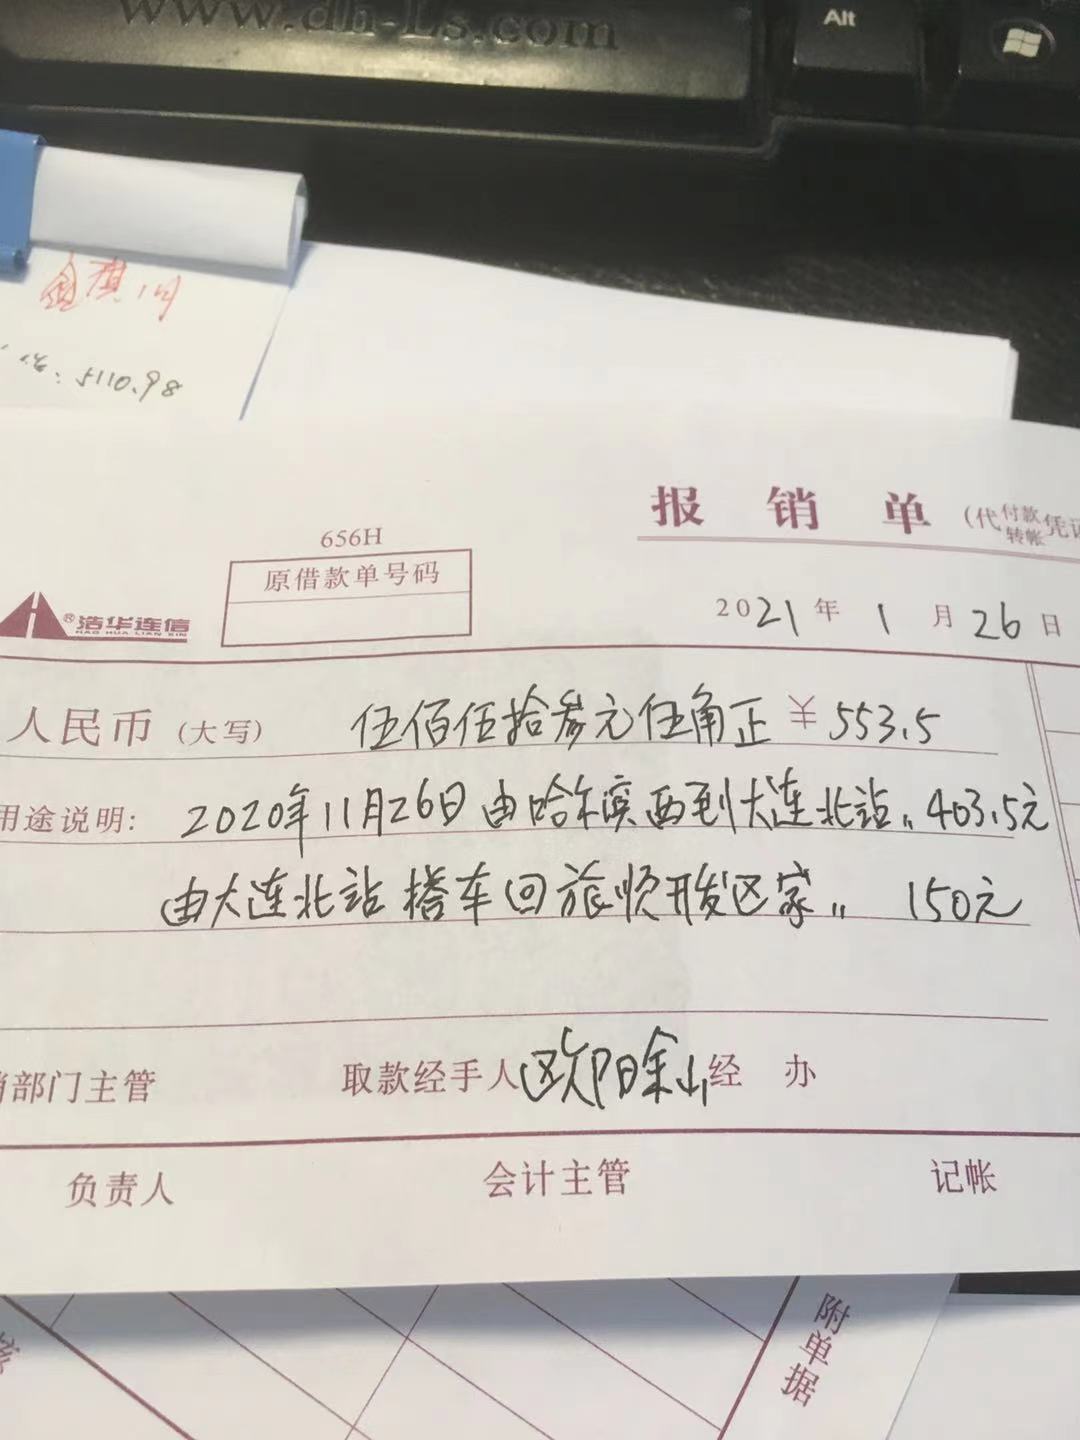 www.dh-Ls.com
Alt
5110.98
报销单(代付款转帐凭证
656H
原借款单号码
®浩华连信
HAO HUA LIAN XIN
2021年1月26日
人民币(大写) 伍佰伍拾叁元伍角正 ¥553.5
用途说明: 2020年11月26日由哈尔滨西到大连北站,,403.5元
由大连北站搭车回旅顺开发区家,, 150元
销部门主管 取款经手人 欧阳余山 经办
负责人 会计主管 记帐
附单据